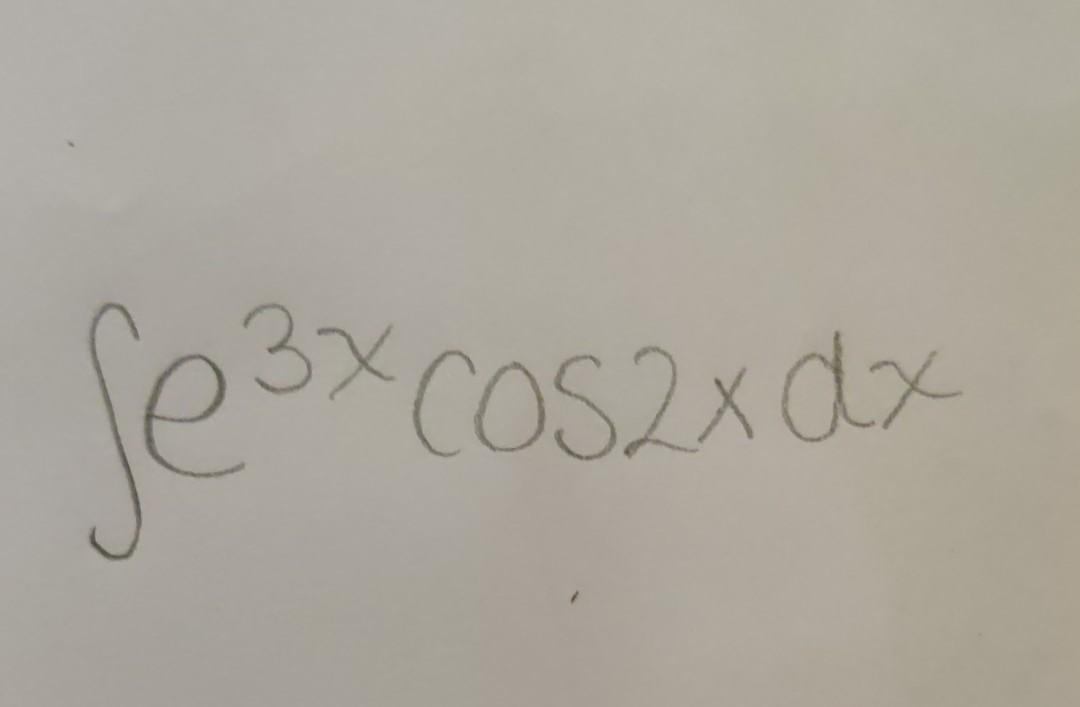 ∫e³ˣcos2xdx